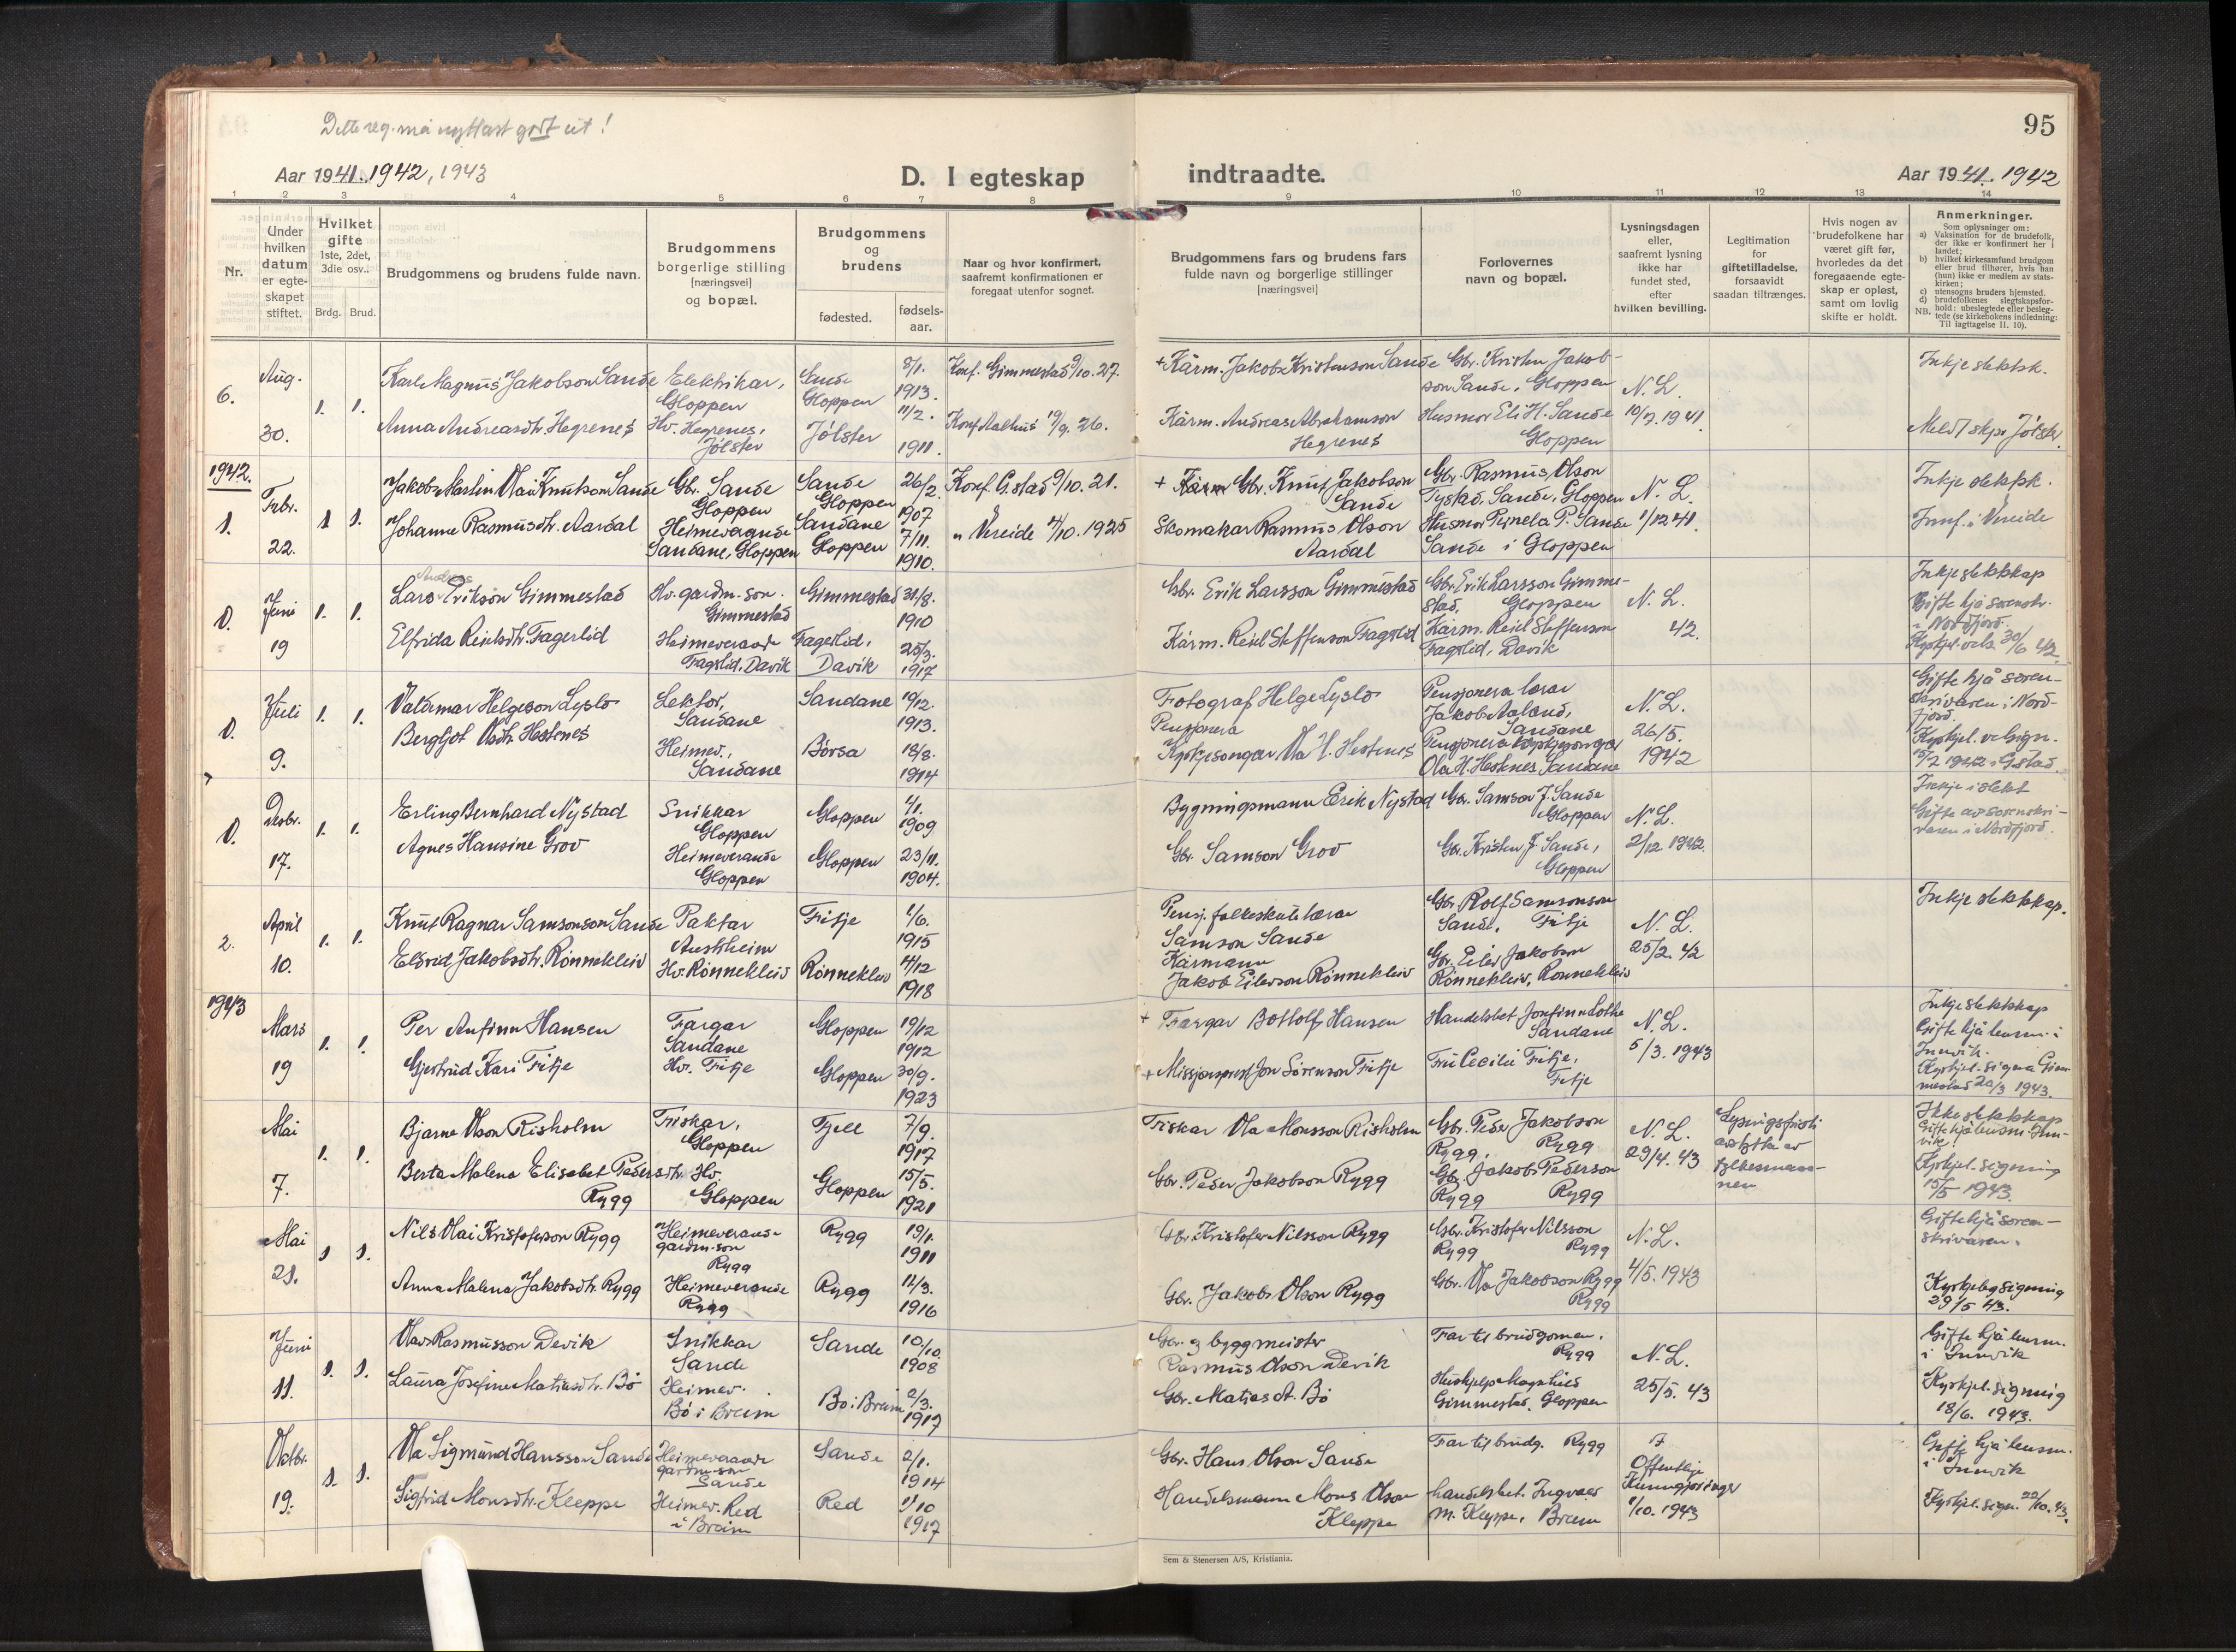 Dette reg. må nyttast godt ut!
95
Aar 1941. 1942, 1943
D. I egteskap
indtraadte.
Aar 1941. 1942
1 2 3 4 5 6 7 8 9 10 11 12 13 14
Nr.
Under hvilken datum er egteskapet stiftet.
Hvilket gifte 1ste, 2det, 3die osv..
Brdg. Brud.
Brudgommens og brudens fulde navn.
Brudgommens borgerlige stilling [næringsvei] og bopæl.
Brudgommens og brudens
fødested. fødsels-aar.
Naar og hvor konfirmert, saafremt konfirmationen er foregaat utenfor sognet.
Brudgommens fars og brudens fars fulde navn og borgerlige stillinger [næringsvei]
Forlovernes navn og bopæl.
Lysningsdagen eller, saafremt lysning ikke har fundet sted, efter hvilken bevilling.
Legitimation for giftetilladelse, forsaavidt saadan tiltrænges.
Hvis nogen av brudefolkene har været gift før, hvorledes da det foregaaende egteskap er opløst, samt om lovlig skifte er holdt.
Anmerkninger.
Som oplysninger om:
a) Vaksination for de brudefolk, der ikke er konfirmert her i landet;
b) hvilket kirkesamfund brudgom eller brud tilhører, hvis han (hun) ikke er medlem av statskirken;
c) utensogns bruders hjemsted.
d) brudefolkenes slegtskapsforhold: ubeslegtede eller beslegtede (se kirkebokens indledning: NB. Til Iagttagelse II. 10).
6. Aug. 30. 1. 1.
Karl Magnus Jakobson Sande Elektrikar, Gloppen Sande Gloppen 8/1. 1913. Konf. Gimmestad 9/10. 27.
+ Kårm. Jakob Kristenson Sande Gbr. Kristen Jakobson Sande, Gloppen N. L. 10/7. 1941. Inkje slektsk.
Anna Andreasdtr. Hegrenes Hv. Hegrenes, Jølster Jølster 11/2. 1911. Konf. Aalhus 19/9. 26.
Kårm. Andreas Abrahamson Hegrenes Husmor Eli H. Sande Gloppen Meld t. skpr. Jølster.
1942.
1. Febr. 22. 1 1.
Jakob Martin Olai Knutson Sande Gbr. Sande Gloppen Sande Gloppen 26/2. 1907 Konf. G.stad 9/10. 21.
+ Gbr. Knut Jakobson Sande Gbr. Rasmus Olson Tystad, Sande, Gloppen N. L. 1/12 41. Inkje slektsk.
Johanne Rasmusdtr. Aardal Heimeverande Sandane, Gloppen Sandane Gloppen 7/11. 1910. " Vereide 4/10. 1925
Skomakar Rasmus Olson Aardal Husmor Pernela P. Sande Sande i Gloppen Innf. i Vereide
0. Juni 19 1. 1.
Lars Andreas Erikson Gimmestad Hv. gardm.son. Gimmestad Gimmestad 31/8. 1910
Gbr. Erik Larsson Gimmestad Gbr. Erik Larsson Gimmestad, Gloppen N. L. 42. Inkje slektskap Gifte hjå sorenskr. i Nordfjord.
Elfrida Reielsdtr. Fagerlid Heimeverande Fagerlid, Davik Fagerlid, Davik 25/3. 1917
Kårm. Reiel Steffenson Fagerlid Kårm. Reiel Steffenson Fagerlid, Davik Kyrkjel. vels. 30/6 42.
0. Juli 9. 1. 1.
Valdemar Helgeson Lyslo Lektor, Sandane Sandane 19/12. 1913.
Fotograf Helge Lyslo Pensjonera lærar Jakob Aaland, Sandane N. L. 26/5. 1942 Gifte hjå sorenskrivaren i Nordfjord.
Bergljot Olsdtr. Hestenes Heimev., Sandane Børsa 18/8. 1914
Pensjonera Kyrkjesongar Ola H. Hestenes Pensjonera kyrkjesongar Ola H. Hestenes Sandane Kyrkjel. velsign. 15/7 1942 i G.stad.
0. Desbr. 17. 1. 1.
Erling Bernhard Nystad Snikkar Gloppen Gloppen 4/1. 1909
Bygningsmann Erik Nystad Gbr. Samson J. Sande Gloppen N. L. 2/12. 1942. Inkje i slekt
Agnes Hansine Grov Heimeverande Gloppen Gloppen 23/11. 1904.
Gbr. Samson Grov Gbr. Kristen J. Sande, Gloppen Gifte av sorenskrivaren i Nordfjord.
2. April 10. 1. 1.
Knut Ragnar Samsonson Sande Paktar Austrheim Fitje 1/6. 1915
Pensj. folkeskulelærar Samson Sande Gbr. Rolf Samsonson Sande, Fitje N. L. 25/2. 42 Inkje slektskap.
Eldrid Jakobsdtr. Rønnekleiv Hv. Rønnekleiv Rønnekleiv 4/12 1918
Kårmann Jakob Eilevson Rønnekleiv Gbr. Eilev Jakobson Rønnekleiv, Rønnekleiv
1943
Mars 19 1. 1.
Per Anfinn Hansen Fargar Sandane Gloppen 19/12 1912
+ Færgar Bottolf Hansen Handelsbet. Jonfinn Lothe Sandane N. L. 5/3. 1943 Inkje slektskap Gifte hjå lensm. i Innvik.
Gjertrud Kari Fitje Hv. Fitje Gloppen 30/9. 1923
+ Missjonsprest Jon Sørenson Fitje Fru Cecilie Fitje, Fitje Kyrkjel. signa Gimmestad 20/3 1943.
Mai 7. 1. 1.
Bjarne Olson Risholm Fiskar, Gloppen Fjell 7/9. 1917
Fiskar Ola Monsson Risholm Gbr. Peder Jakobson Rygg, Rygg N. L. 29/4. 43 Lysingsfristi avstytta av fylkesmannen Ikke slektskap Gifte hjå lensm. Innvik.
Berta Malena Elisabet Pedersdtr. Rygg Hv. Gloppen Gloppen 15/5. 1921
Gbr. Peder Jakobson Rygg Gbr. Jakob Pederson Rygg Rygg Kyrkjel. signing 15/5 1943.
Mai 21. 1 1.
Nils Olai Kristoferson Rygg Heimeverande gardm.son Rygg Rygg 19/1. 1911
Gbr. Kristofer Nilsson Rygg Gbr. Kristofer Nilsson Rygg Rygg N. L. 4/5. 1943 Gifte hjå sorenskrivaren.
Anna Malena Jakobsdtr. Rygg Heimeverande Rygg Rygg 11/3. 1916
Gbr. Jakob Olson Rygg Gbr. Ola Jakobson Rygg Rygg Kyrkjeleg signing 29/5 43.
Juni 11. 1. 1.
Olav Rasmusson Devik Snikkar Sande Sande 10/10. 1908
Gbr. og byggmeister Rasmus Olson Devik Far til brudgomen. Rygg N. L. 25/5. 43 Gifte hjå lensm. i Innvik
Laura Josefine Matiasdtr. Bø Heimev. Bø i Breim Bø i Breim 2/3. 1917
Gbr. Matias A. Bø Hushjelp Magnhild Gimmestad, Gloppen Kyrkjel. signing 18/6. 1943.
Oktbr. 19. 1. 1.
Ola Sigmund Hansson Sande Heimeverande gardm.son Sande Sande 2/1. 1914
Gbr. Hans Olson Sande Far til brudg. Rygg Offentlege Kunngjøringer 1/10. 1943 Gifte hjå lensm. i Innvik
Sigfrid Monsdtr. Kleppe Heimev. Red i Breim Red 1/10 1917
Handelsmann Mons Olson Kleppe handelsbet. Ingvald M. Kleppe, Breim Kyrkjel. sign. 22/10. 43.
Sem & Stenersen A/S, Kristiania.